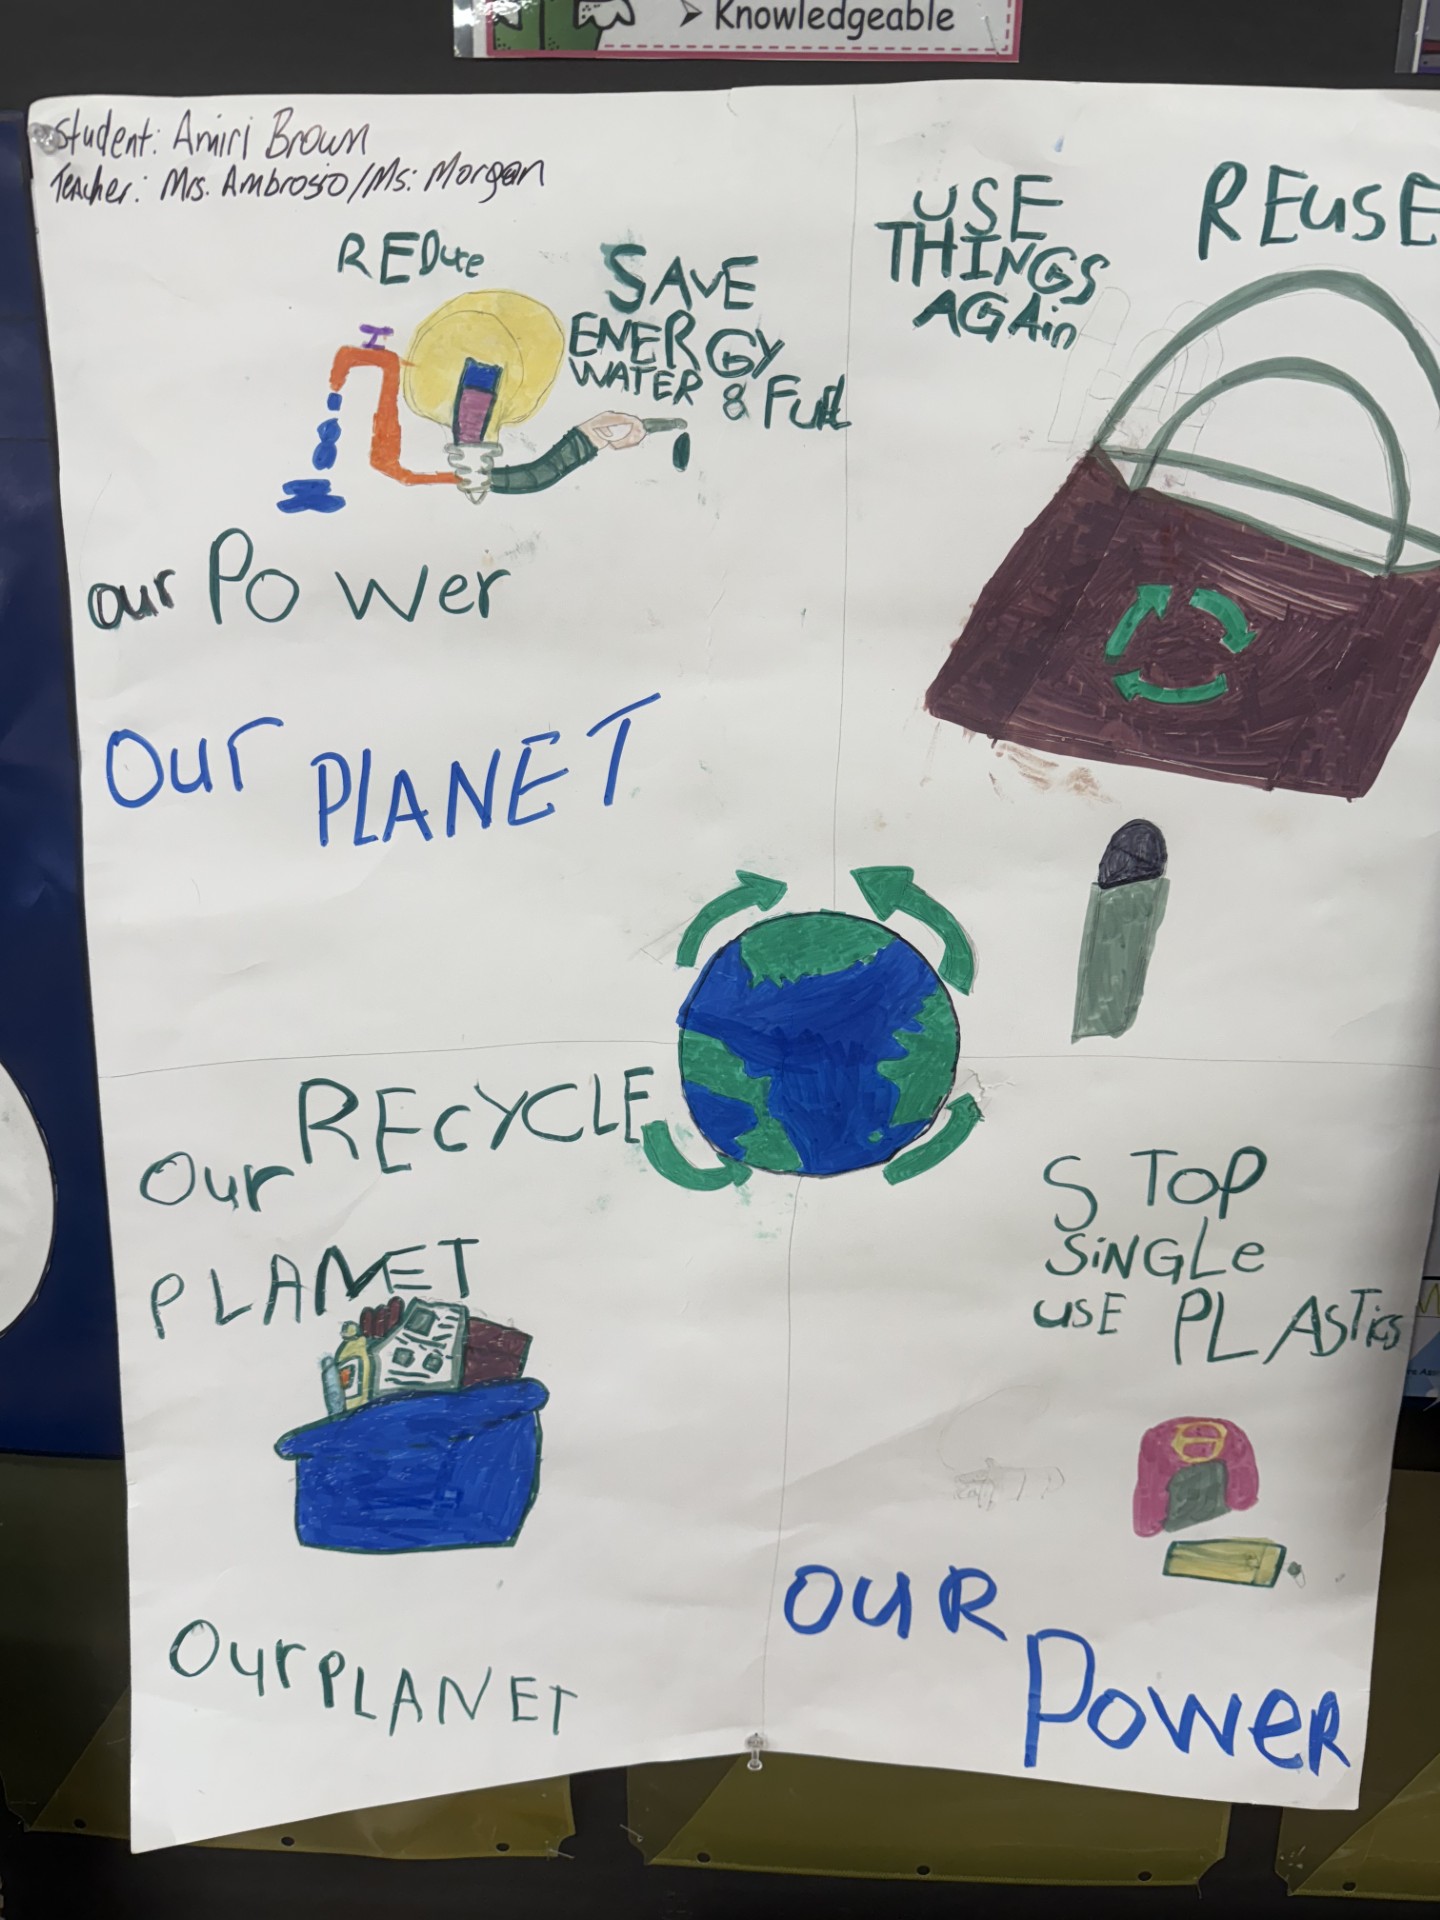 ➤ Knowledgeable
Student: Amiri Brown
Teacher: Mrs. Ambrosio/Ms: Morgan
REDuce
SAVE
ENERGY
WATER & FuEl
our PoWer
Our PLANET
USE
THINGS
AGAin
REuSE
RECYCLE
Our
PLANET
OurPLANET
STOP
SiNGLe
uSE PLAsTics
OUR
PoWeR